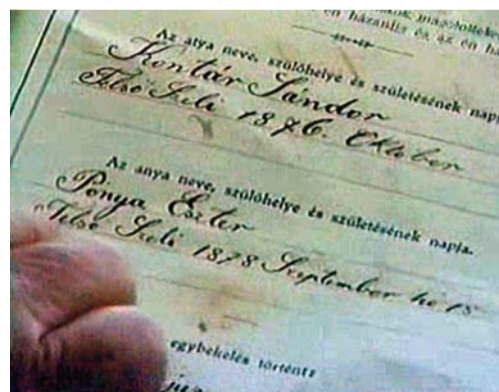 én házamja és az én há
Az atya neve, szülőhelye és születésének napja
Kontár Sándor
Felső Szeli 1876. Oktober
Az anya neve, szülőhelye és születésének napja.
Pónya Eszter
Felső Szeli 1878 September hó 15
egybekelés történt